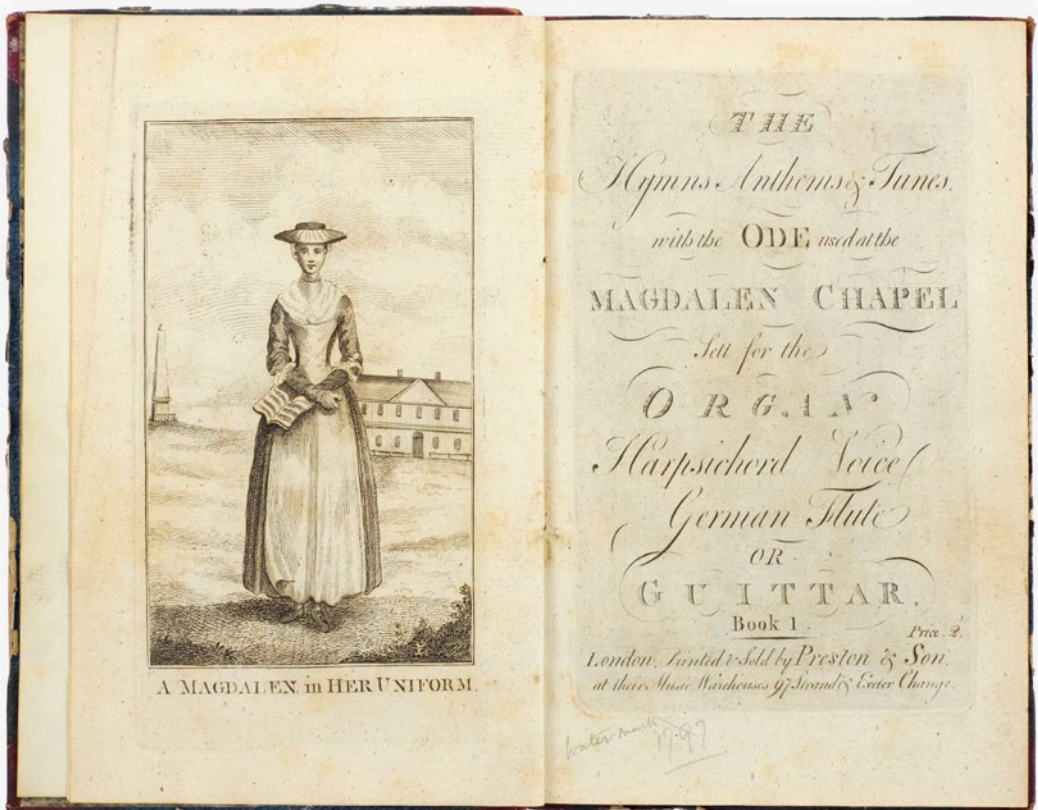 A MAGDALEN, in HER UNIFORM.
THE
Hymns Anthems & Tunes,
with the ODE used at the
MAGDALEN CHAPEL
Sett for the
ORGAN
Harpsichord Voice
German Flute
OR
GUITTAR.
Book 1.
Price. 2.s
London, Printed & Sold by Preston & Son.
at their Music Warehouses 97 Strand & Exeter Change.
Water mark
1797